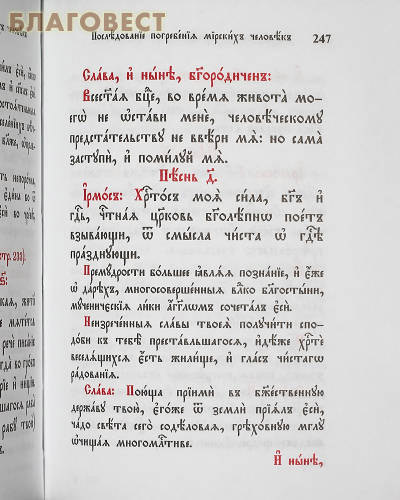 БЛАГОВЕСТ
Послѣ́дованїе погребе́нїя мїрски́хъ человѣ́къ 247
Сла́ва, и҆ ны́нѣ, бг҃оро́диченъ:
Всест҃а́ѧ бц҃е, во вре́мѧ живота̀ мо-
егѡ̀ не ѡ҆ста́ви менѐ, человѣ́ческому
предста́тельству не ввѣ́ри мѧ̀: но сама̀
заступѝ, и҆ поми́луй мѧ̀.
Пѣ́снь д҃.
І҆рмо́съ: Хрⷭ҇то́съ моѧ̀ си́ла, бг҃ъ и҆
гдⷭ҇ь, чтⷭ҇на́ѧ цр҃ковь бг҃олѣ́пнѡ пое́тъ
взыва́ющи, ѿ смы́сла чи́ста ѡ҆ гдⷭ҇ѣ
пра́зднующи.
Прему́дрости бо́льшее ꙗ҆влѧ́ѧ позна́нїе, и҆ є҆́же
ѡ҆ дарѣ́хъ, многосоверше́нныѧ влⷣко бла́гостыни,
му́ченическїѧ ли́ки а҆́гг҃лѡмъ сочета́лъ є҆сѝ.
Неизрече́нныѧ сла́вы твоеѧ̀ получи́ти спо-
до́би къ тебѣ̀ преста́вльшагосѧ, и҆дѣ́же хрⷭ҇тѐ
веселѧ́щихсѧ є҆́сть жили́ще, и҆ гла́съ чи́стагѡ
ра́дованїѧ.
Сла́ва: Пою́ща прїимѝ въ бжⷭ҇е́ственную
держа́ву твою̀, є҆го́же ѿ землѝ прїѧ́лъ є҆сѝ,
ча́до свѣ́та содѣ́ловаѧ, грѣхо́вную мглу̀
ѡ҆чища́ѧ многомлⷭ҇тиве.
И҆ ны́нѣ,
стр. 233).